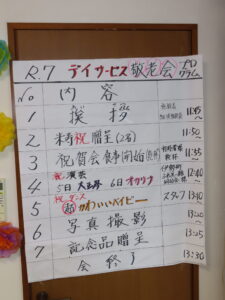 R.7 デイサービス 敬老会 プログラム
No 内容
1 挨拶 11:45〜
2 米寿祝贈呈(2名) 11:50
3 祝賀会食事開始(乾杯) 11:55
4 祝演芸 12:40〜
5日 大正琴 6日 オカリナ
5 祝ダンス 超かわいいベイビー スタッフ 13:10
6 写真撮影 13:20
7 記念品贈呈 13:25
会終了 13:30